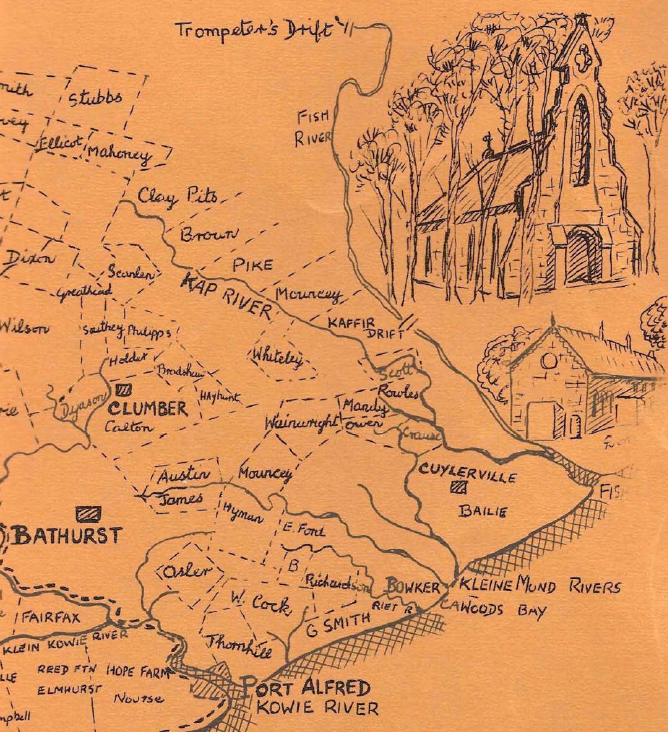 Trompeter's Drift
FISH
RIVER
Stubbs
Ellicot
Mahoney
Clay Pits
Brown
Dixon
Scanlen
PIKE
Greathead
KAP RIVER
Mouncey
Wilson
Southey
Philipps
KAFFIR
DRIFT
Holder
Whiteley
Bradshaw
Scott
Dyason
Hayhunt
Rowles
CLUMBER
Mandy
Calton
Wainwright
Owen
Krause
Austin
Mouncey
CUYLERVILLE
James
Hyman
BAILIE
BATHURST
E. Ford
Osler
B
Richardson
BOWKER
KLEINE MUND RIVERS
W. Cock
RIET R
CAWOODS BAY
FAIRFAX
G SMITH
KLEIN KOWIE RIVER
Thornhill
REED FTN
HOPE FARM
ELMHURST
Nourse
PORT ALFRED
KOWIE RIVER